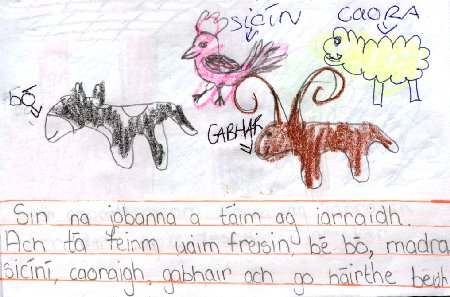 sicín
CAORA
bó
GABHAR
Sin na jobanna a táim ag iarraidh.
Ach tá feirm uaim freisin, bé bó, madra
sicíní, caoraigh, gabhair ach go háirthe beidh